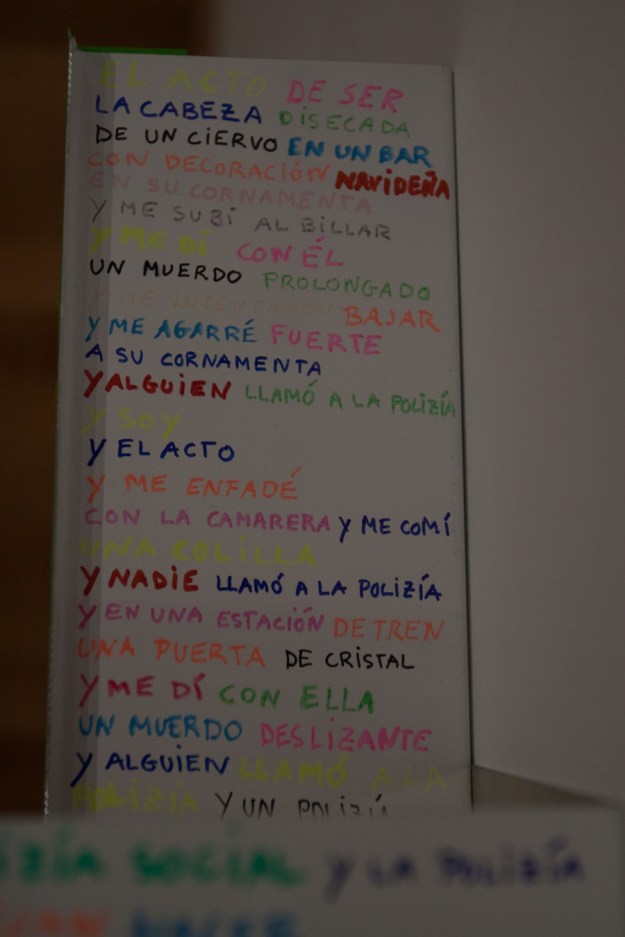 EL ACTO DE SER
LA CABEZA DISECADA
DE UN CIERVO EN UN BAR
CON DECORACIÓN NAVIDEÑA
EN SU CORNAMENTA
Y ME SUBÍ AL BILLAR
Y ME DÍ CON ÉL
UN MUERDO PROLONGADO
Y ME INTENTARON BAJAR
Y ME AGARRÉ FUERTE
A SU CORNAMENTA
Y ALGUIEN LLAMÓ A LA POLIZÍA
Y SOY
Y EL ACTO
Y ME ENFADÉ
CON LA CAMARERA Y ME COMÍ
UNA COLILLA
Y NADIE LLAMÓ A LA POLIZÍA
Y EN UNA ESTACIÓN DE TREN
UNA PUERTA DE CRISTAL
Y ME DÍ CON ELLA
UN MUERDO DESLIZANTE
Y ALGUIEN LLAMÓ A LA
POLIZÍA Y UN POLIZÍA
SOCIAL Y LA POLIZÍA
HACER